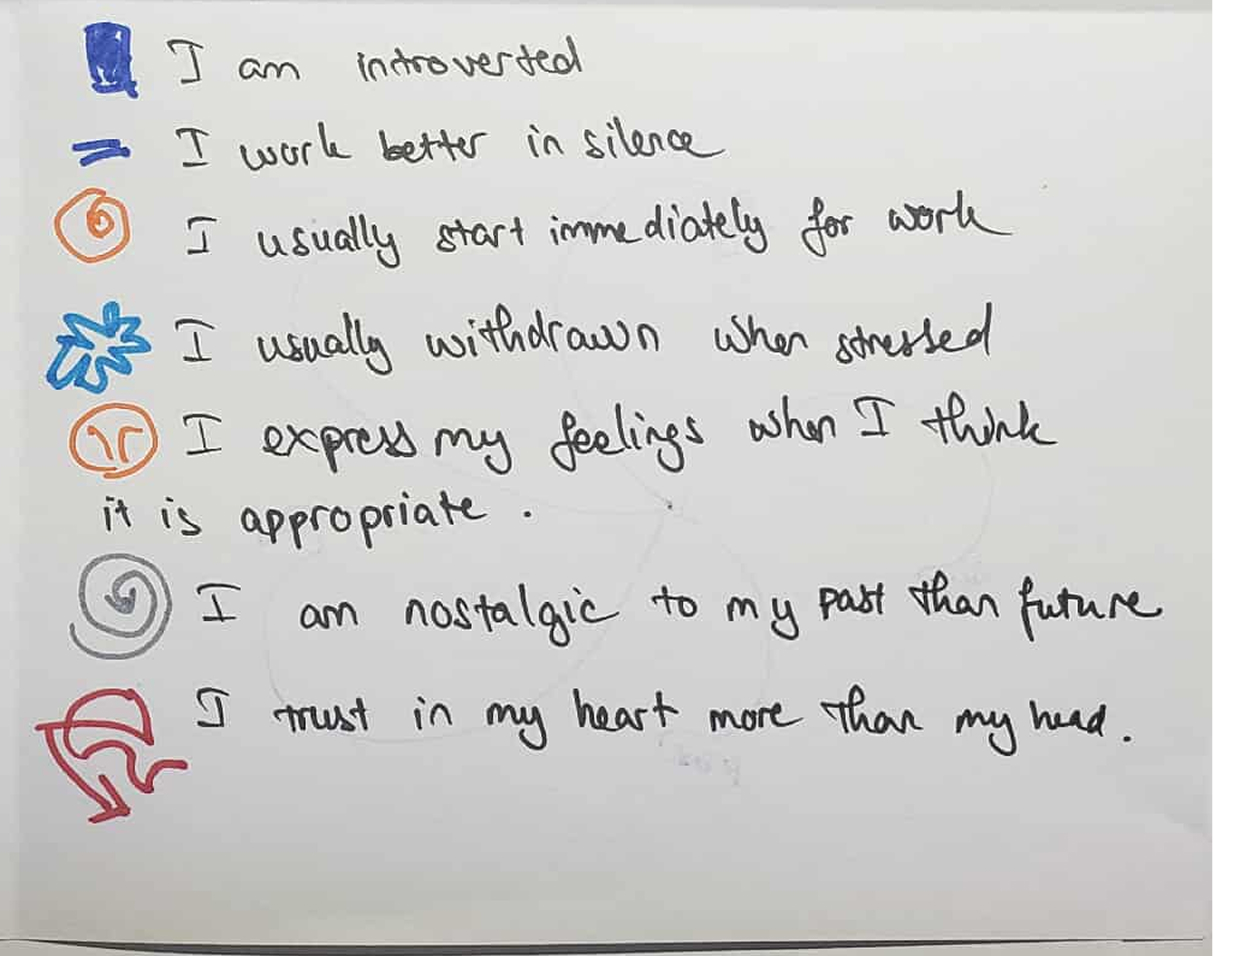 I am introverted
I work better in silence
I usually start immediately for work
I usually withdrawn when stressed
I express my feelings when I think
it is appropriate.
I am nostalgic to my past than future
I trust in my heart more than my head.